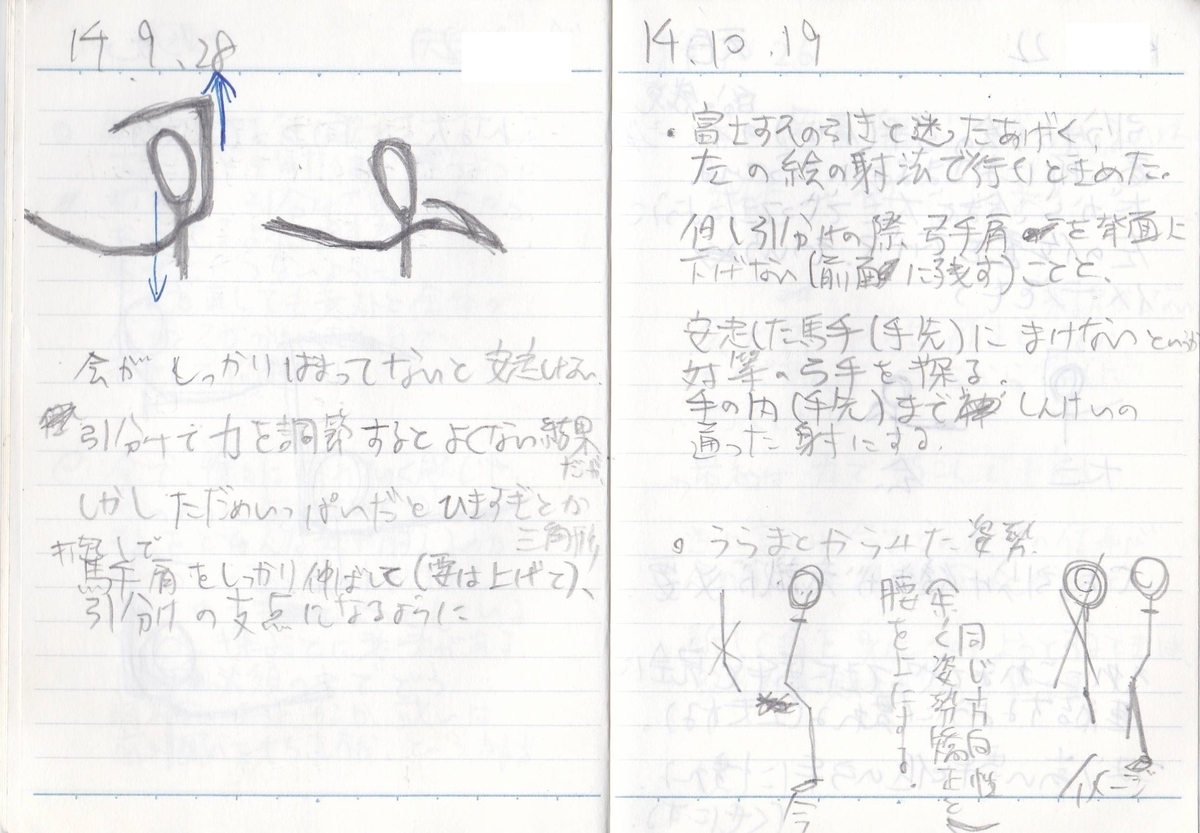 14.9.28
会がしっかりはまってないと安定しない
引分けで力を調節するとよくない結果
だが
しかしただめいっぱいだとひきすぎとか
三角形
打起しで
馬手肩をしっかり伸ばして(要は上げて)、
引分けの支点になるように
14.10.19
・富士すその引きと迷ったあげく
左の絵の射法で行くときめた。
但し引分けの際弓手肩を背面に
下げない(前面に残す)ことと、
安定した馬手(手先)にまけないという
対等の弓手を探る。
手の内(手先)までしんけいの
通った射にする。
。うらまとからみた姿勢
同じ方向性
余く姿勢矯正と
腰を上にする
今
イメージ